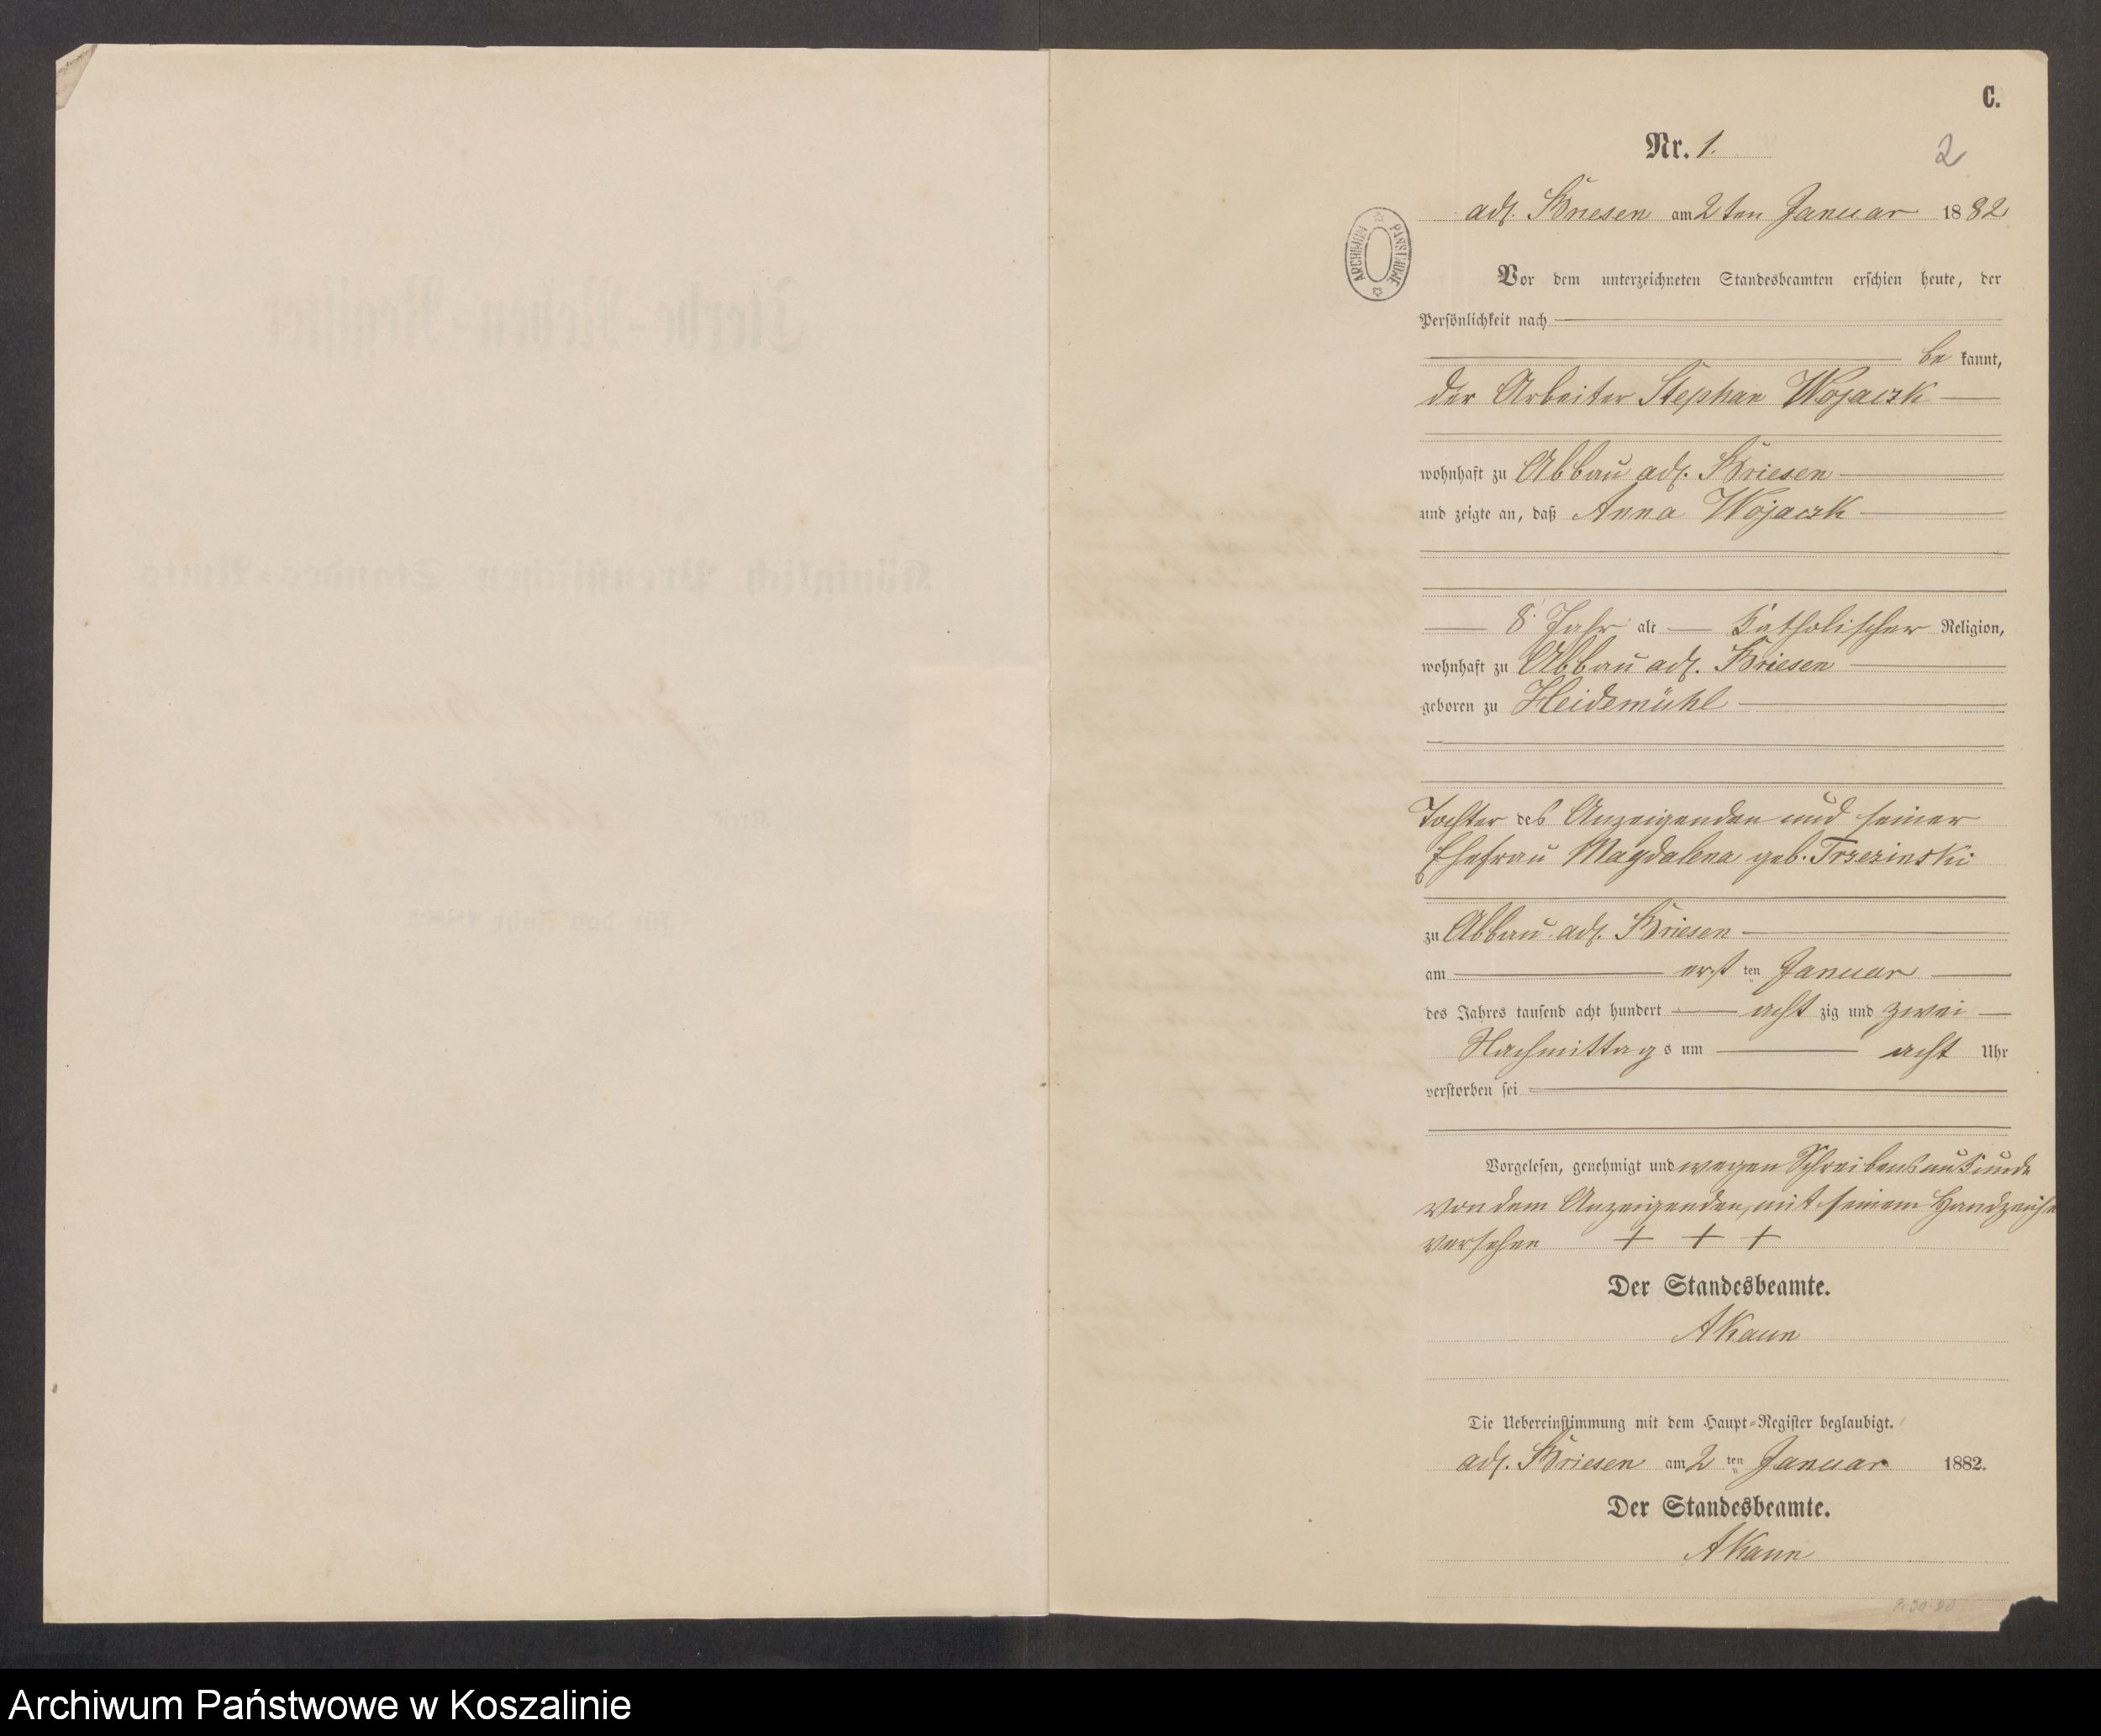 C.
Nr. 1.
2
adl. Briesen am 2ten Januar 1882
ARCHIWUM PAŃSTWOWE
Vor dem unterzeichneten Standesbeamten erschien heute, der
Persönlichkeit nach
be kannt,
der Arbeiter Stephan Wojaczk
wohnhaft zu Abbau adl. Briesen
und zeigte an, daß Anna Wojaczk
8 Jahr alt katholischer Religion,
wohnhaft zu Abbau adl. Briesen
geboren zu Heidemühl
Tochter des Anzeigenden und seiner
Ehefrau Magdalena geb. Trzezinski
zu Abbau adl. Briesen
am erst ten Januar
des Jahres tausend acht hundert acht zig und zwei
Nachmittags um acht Uhr
verstorben sei
Vorgelesen, genehmigt und wegen Schreibensunkunde
von dem Anzeigenden, mit seinem Handzeichen
versehen + + +
Der Standesbeamte.
AKaun
Die Uebereinstimmung mit dem Haupt-Register beglaubigt.
adl. Briesen am 2 ten Januar 1882.
Der Standesbeamte.
AKaun
Archiwum Państwowe w Koszalinie